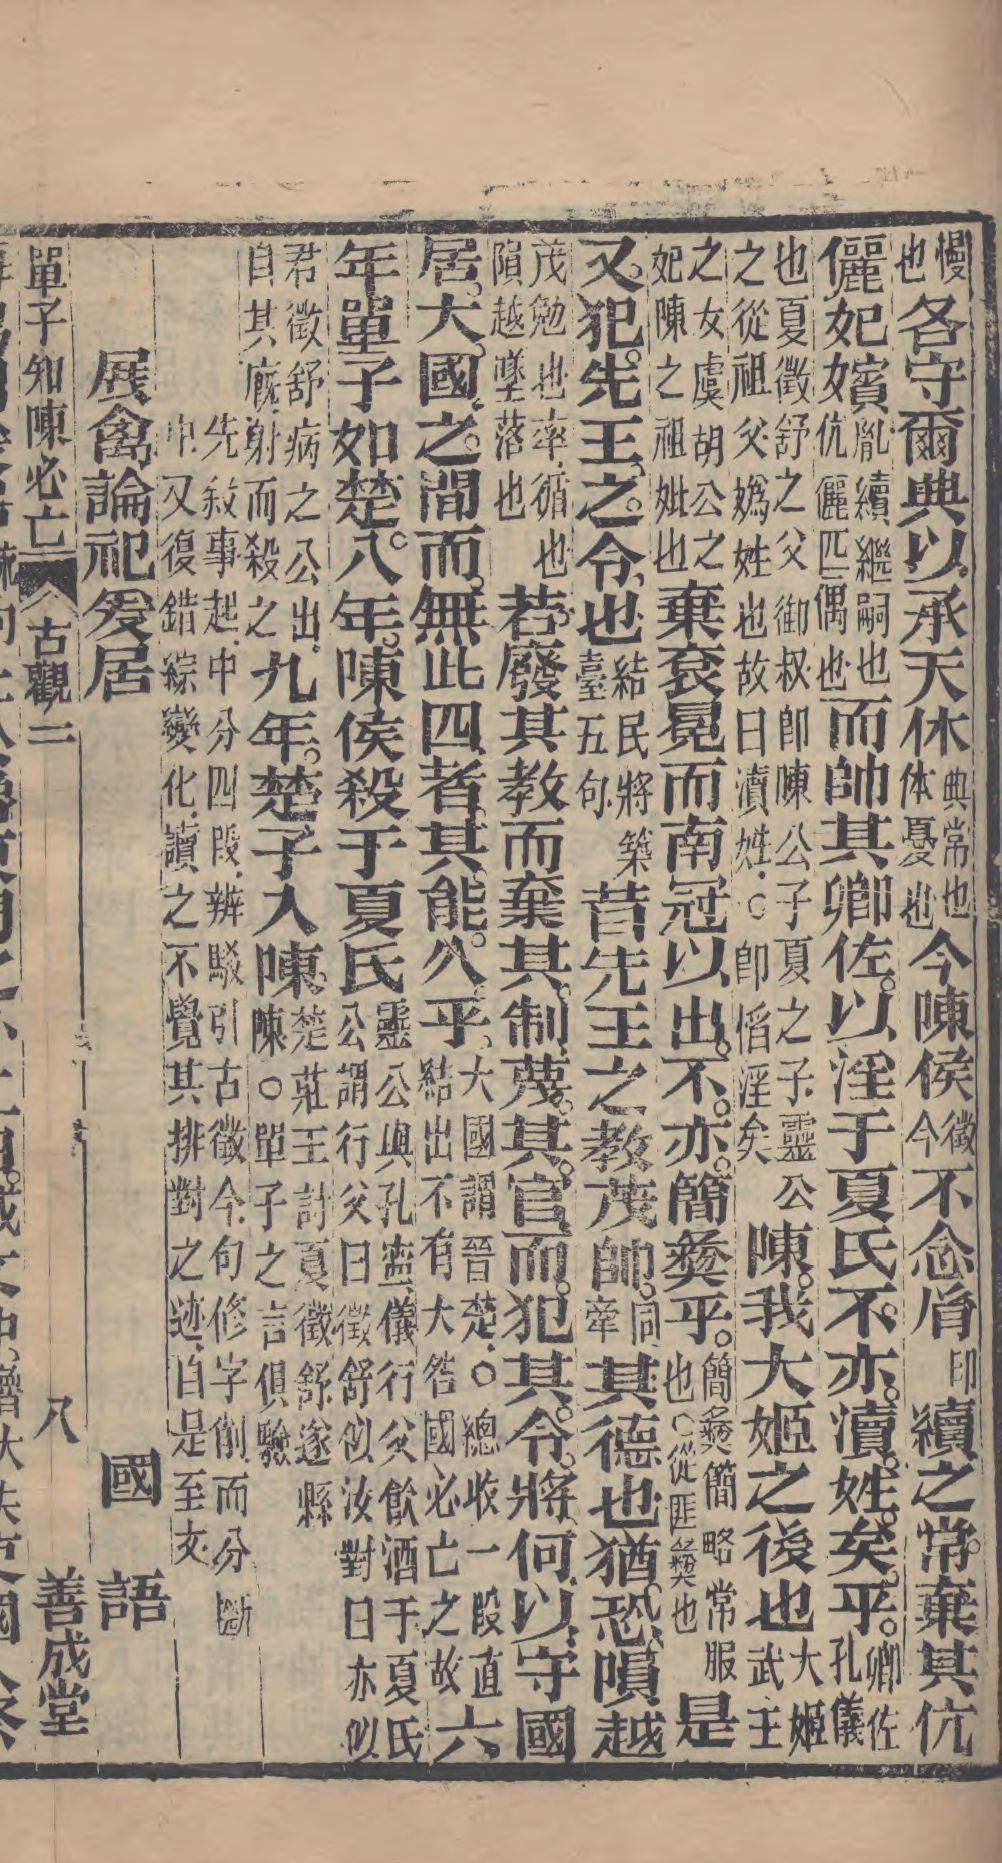 慢
也
各守爾典以承天休
典常也
体憂也
今陳侯
徵
今
不念胤
印
續之常棄其伉
儷妃嬪
胤續繼嗣也
伉儷匹偶也
而帥其卿佐以淫于夏氏不亦瀆姓矣乎
卿佐
孔儀
也夏徵舒之父御叔卽陳公子夏之子靈公
之從祖父嬀姓也故曰瀆姓○卽慆淫矣
陳我大姬之後也
大姬
武王
之女虞胡公之
妃陳之祖妣也
棄衮冕而南冠以出不亦簡彝乎
簡彝簡略常服
也○從匪彝也
是
又犯先王之令也
結民將築
臺五句
昔先王之教茂帥
同
率
其德也猶恐隕越
茂勉也率循也
隕越墜落也
若廢其教而棄其制蔑其官而犯其令將何以守國
居大國之間而無此四者其能久乎
大國謂晉楚○總收一段直
結出不有大咎國必亡之故
六
年單子如楚八年陳侯殺于夏氏
靈公與孔寧儀行父飲酒于夏氏
公謂行父曰徵舒似汝對曰亦似
君徵舒病之公出
自其廄射而殺之
九年楚子入陳
楚莊王討夏徵舒遂縣
陳○單子之言俱驗
先敘事起中分四段辨駁引古徵今句修字削而分斷
中又復錯綜變化讀之不覺其排對之迹自是至文
展禽論祀爰居 國語
單子知陳必亡 古觀二 八 善成堂